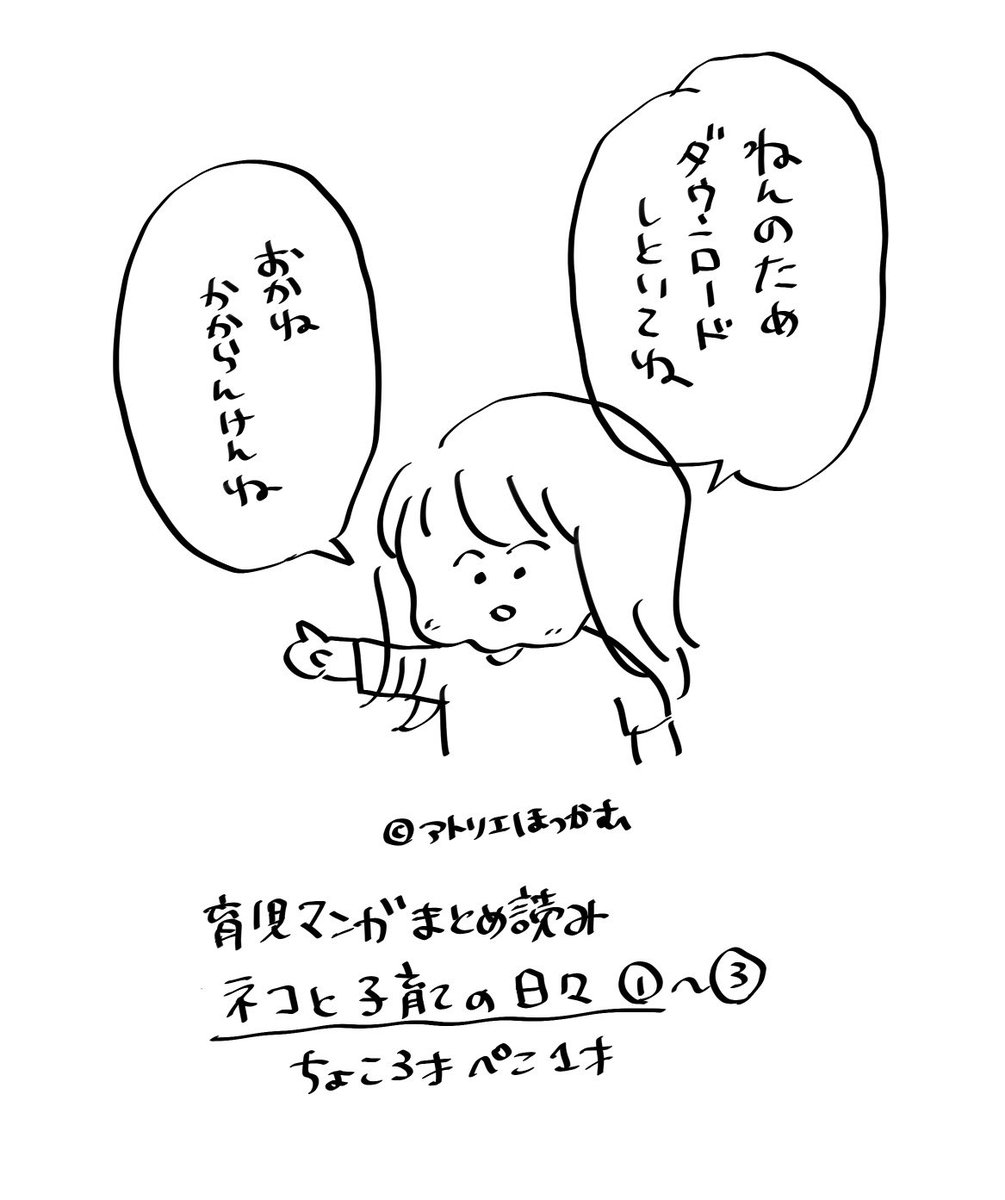 ねんのため
ダウンロード
しといてね
おかね
かからんけんね
©アトリエほっかむ
育児マンガまとめ読み
ネコと子育ての日々①〜③
ちょこ3才ぺこ1才